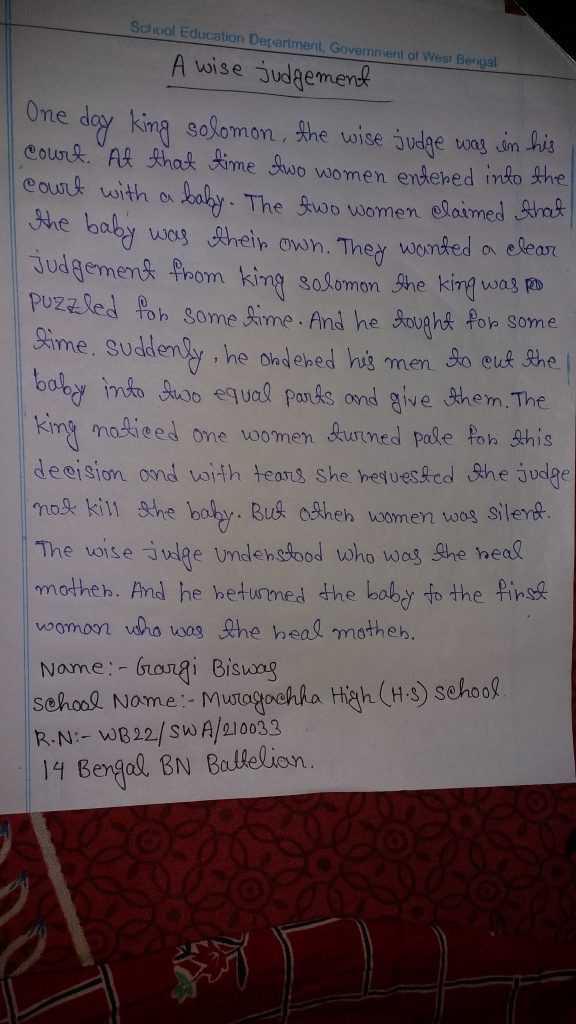 School Education Department, Government of West Bengal
A wise judgement
One day king solomon, the wise judge was in his
court. At that time two women entered into the
court with a baby. The two women claimed that
the baby was their own. They wanted a clear
judgement from king solomon the king was
puzzled for some time. And he tought for some
time. Suddenly, he ordered his men to cut the
baby into two equal parts and give them. The
king noticed one women turned pale for this
decision and with tears she requested the judge
not kill the baby. But other women was silent.
The wise judge understood who was the real
mother. And he returned the baby to the first
woman who was the real mother.
Name:- Gargi Biswas
School Name:- Muragachha High (H.S) School.
R.N:- WB22/SWA/210033
14 Bengal BN Battelian.